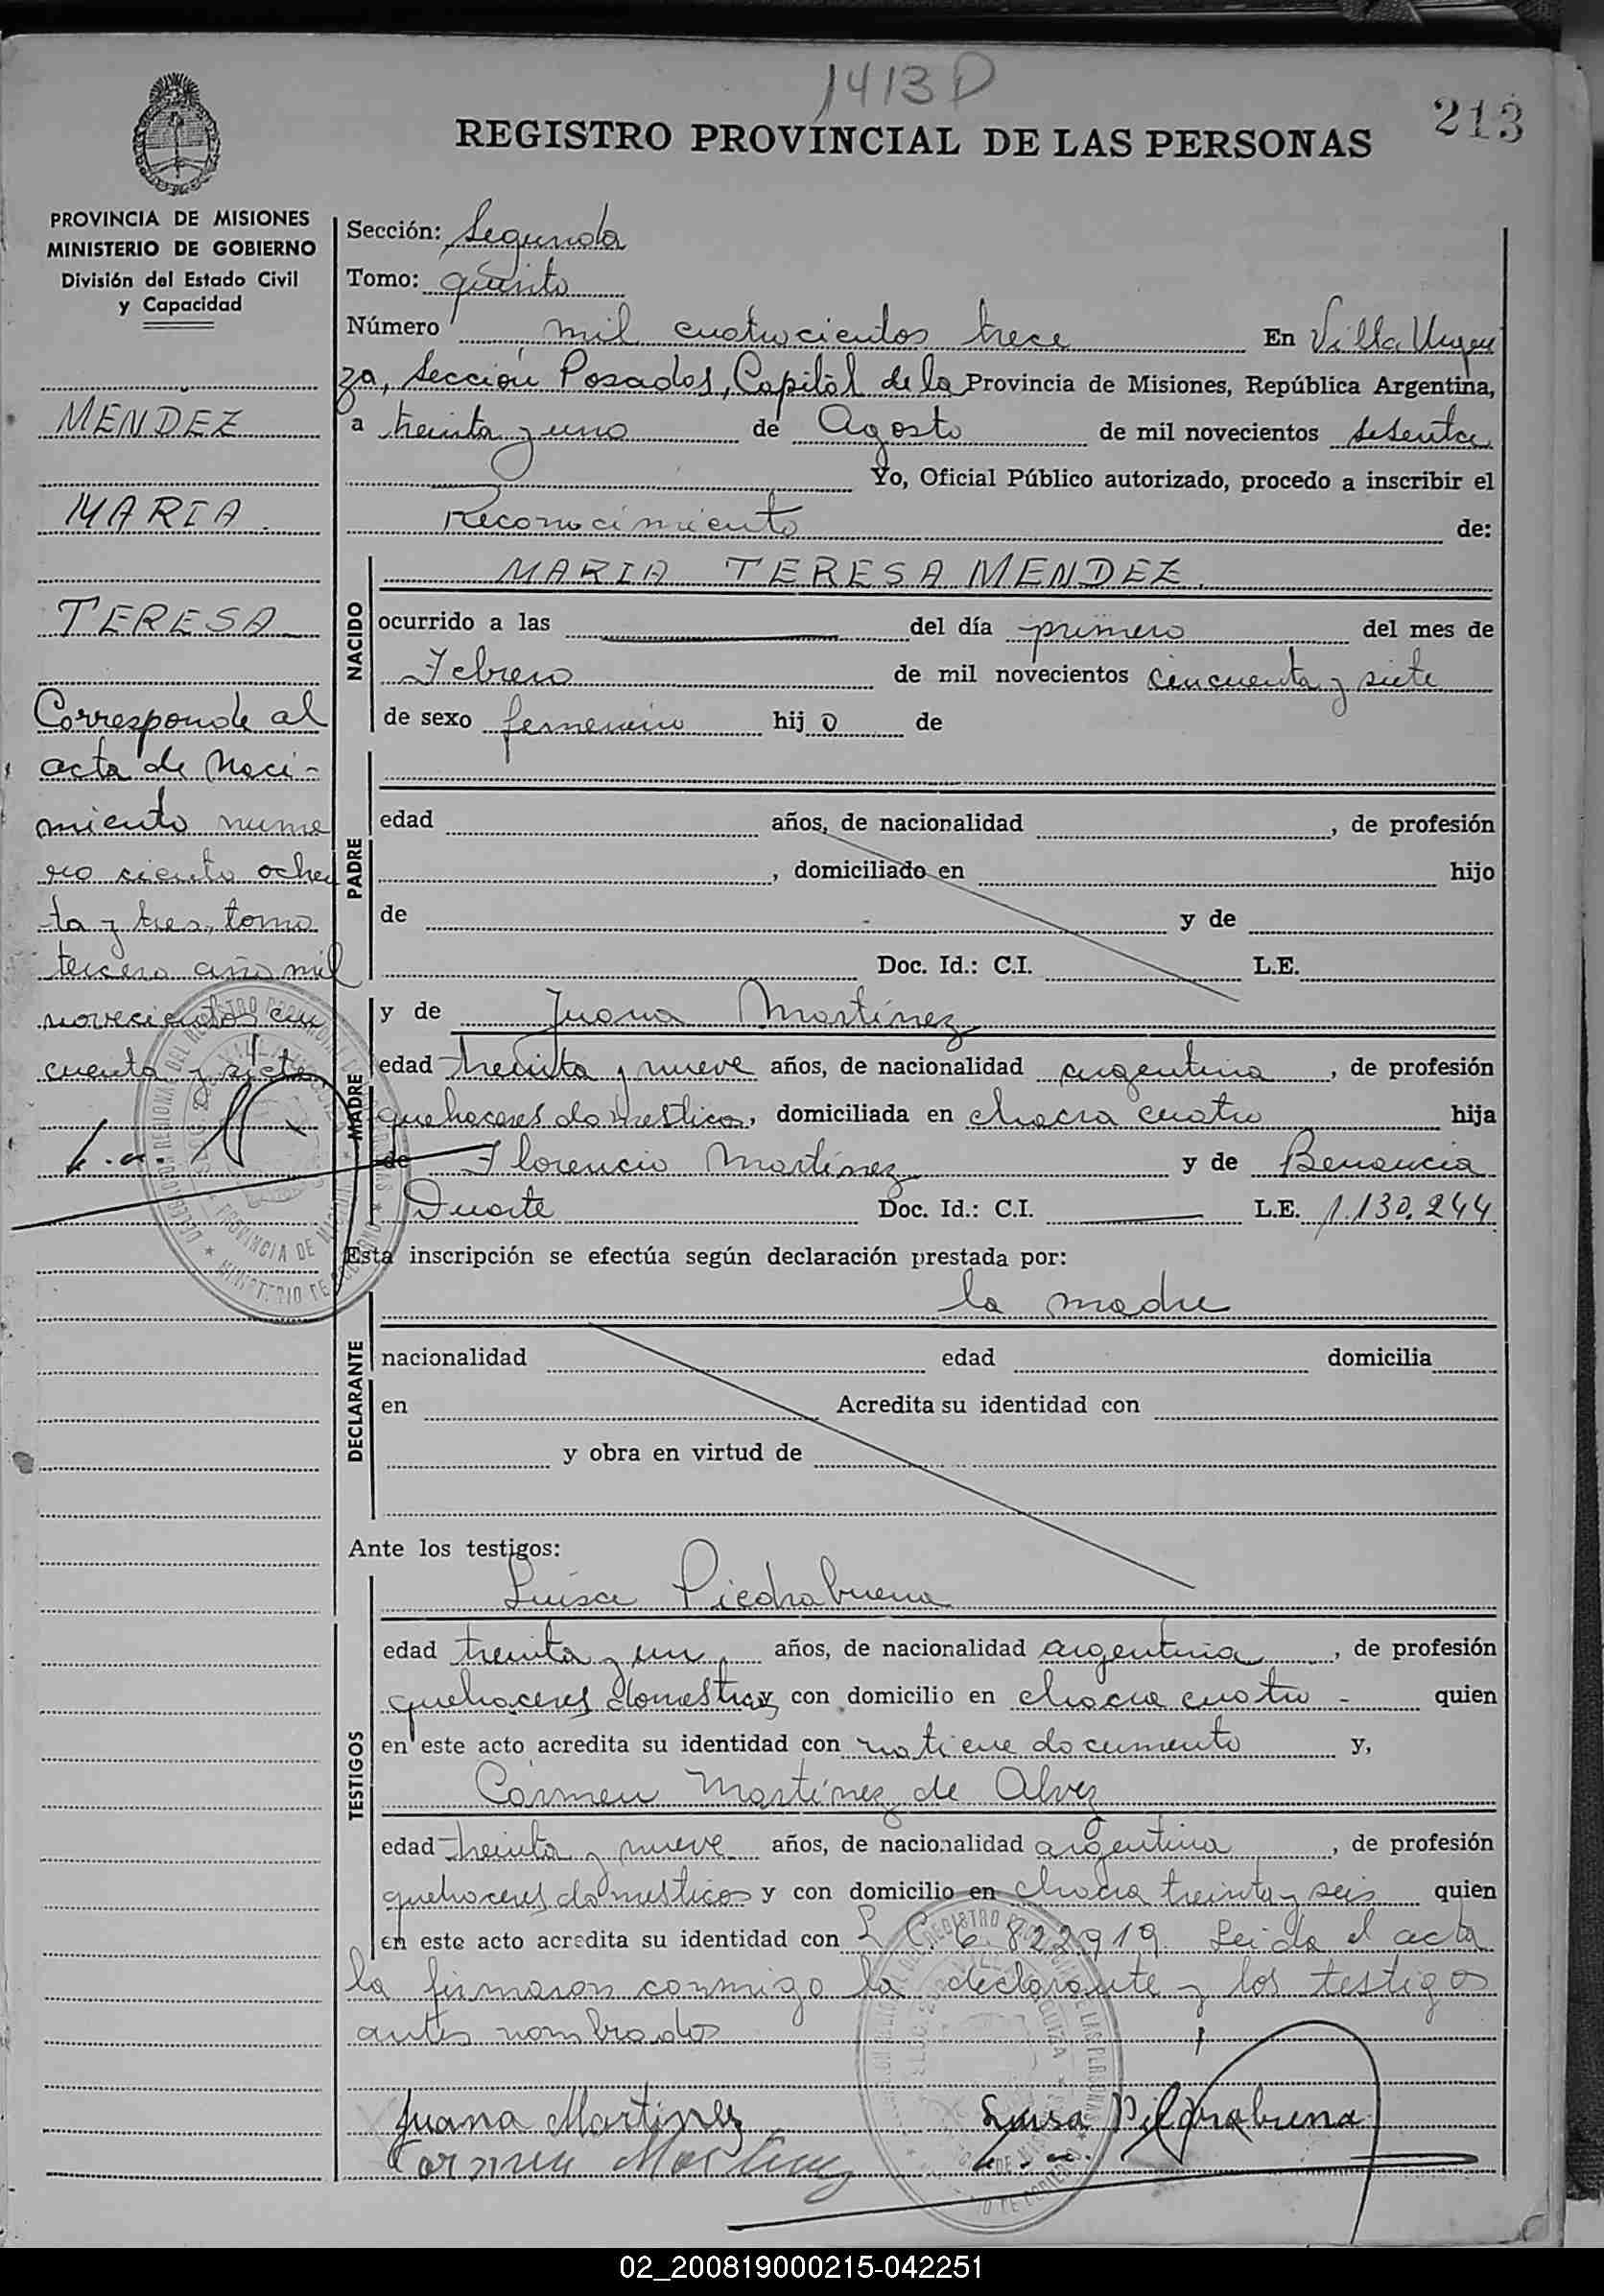 1413 D
213
REGISTRO PROVINCIAL DE LAS PERSONAS
PROVINCIA DE MISIONES
MINISTERIO DE GOBIERNO
División del Estado Civil
y Capacidad
MENDEZ
MARIA
TERESA
Corresponde al
acta de Naci-
miento nume
ro ciento ochen
ta y tres, tomo
tercero año mil
novecientos cin
cuenta y siete
Sección: Segunda
Tomo: quinto
Número mil cuatrocientos trece En Villa Urqui
za, Sección Posadas, Capital de la Provincia de Misiones, República Argentina,
a treinta y uno de Agosto de mil novecientos sesenta
Yo, Oficial Público autorizado, procedo a inscribir el
Reconocimiento de:
NACIDO
MARIA TERESA MENDEZ
ocurrido a las del día primero del mes de
Febrero de mil novecientos cincuenta y siete
de sexo femenino hijo de
PADRE
edad años, de nacionalidad , de profesión
, domiciliado en hijo
de y de
Doc. Id.: C.I. L.E.
MADRE
y de Juana Martínez
edad treinta y nueve años, de nacionalidad argentina , de profesión
quehaceres domesticos, domiciliada en chacra cuatro hija
de Florencio Martínez y de Benancia
Duarte Doc. Id.: C.I. L.E. 1.130.244
Esta inscripción se efectúa según declaración prestada por:
la madre
DECLARANTE
nacionalidad edad domicilia
en Acredita su identidad con
y obra en virtud de
Ante los testigos:
TESTIGOS
Luisa Piedrabuena
edad treinta y un años, de nacionalidad argentina , de profesión
quehaceres domesticos y con domicilio en chacra cuatro - quien
en este acto acredita su identidad con no tiene documento y,
Cármen Martínez de Alvez
edad treinta y nueve años, de nacionalidad argentina , de profesión
quehaceres domesticos y con domicilio en chacra treinta y seis quien
en este acto acredita su identidad con L.C. 6.822919. Leida el acta
la firmaron conmigo la declarante y los testigos
antes nombrados
Juana Martinez Luisa Piedrabuena
Carmen Martinez
02_200819000215-042251